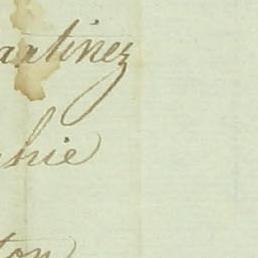 artinez
hie
ton